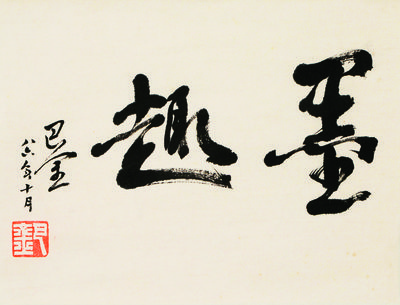 墨趣
巴金
八六年十月
巴金